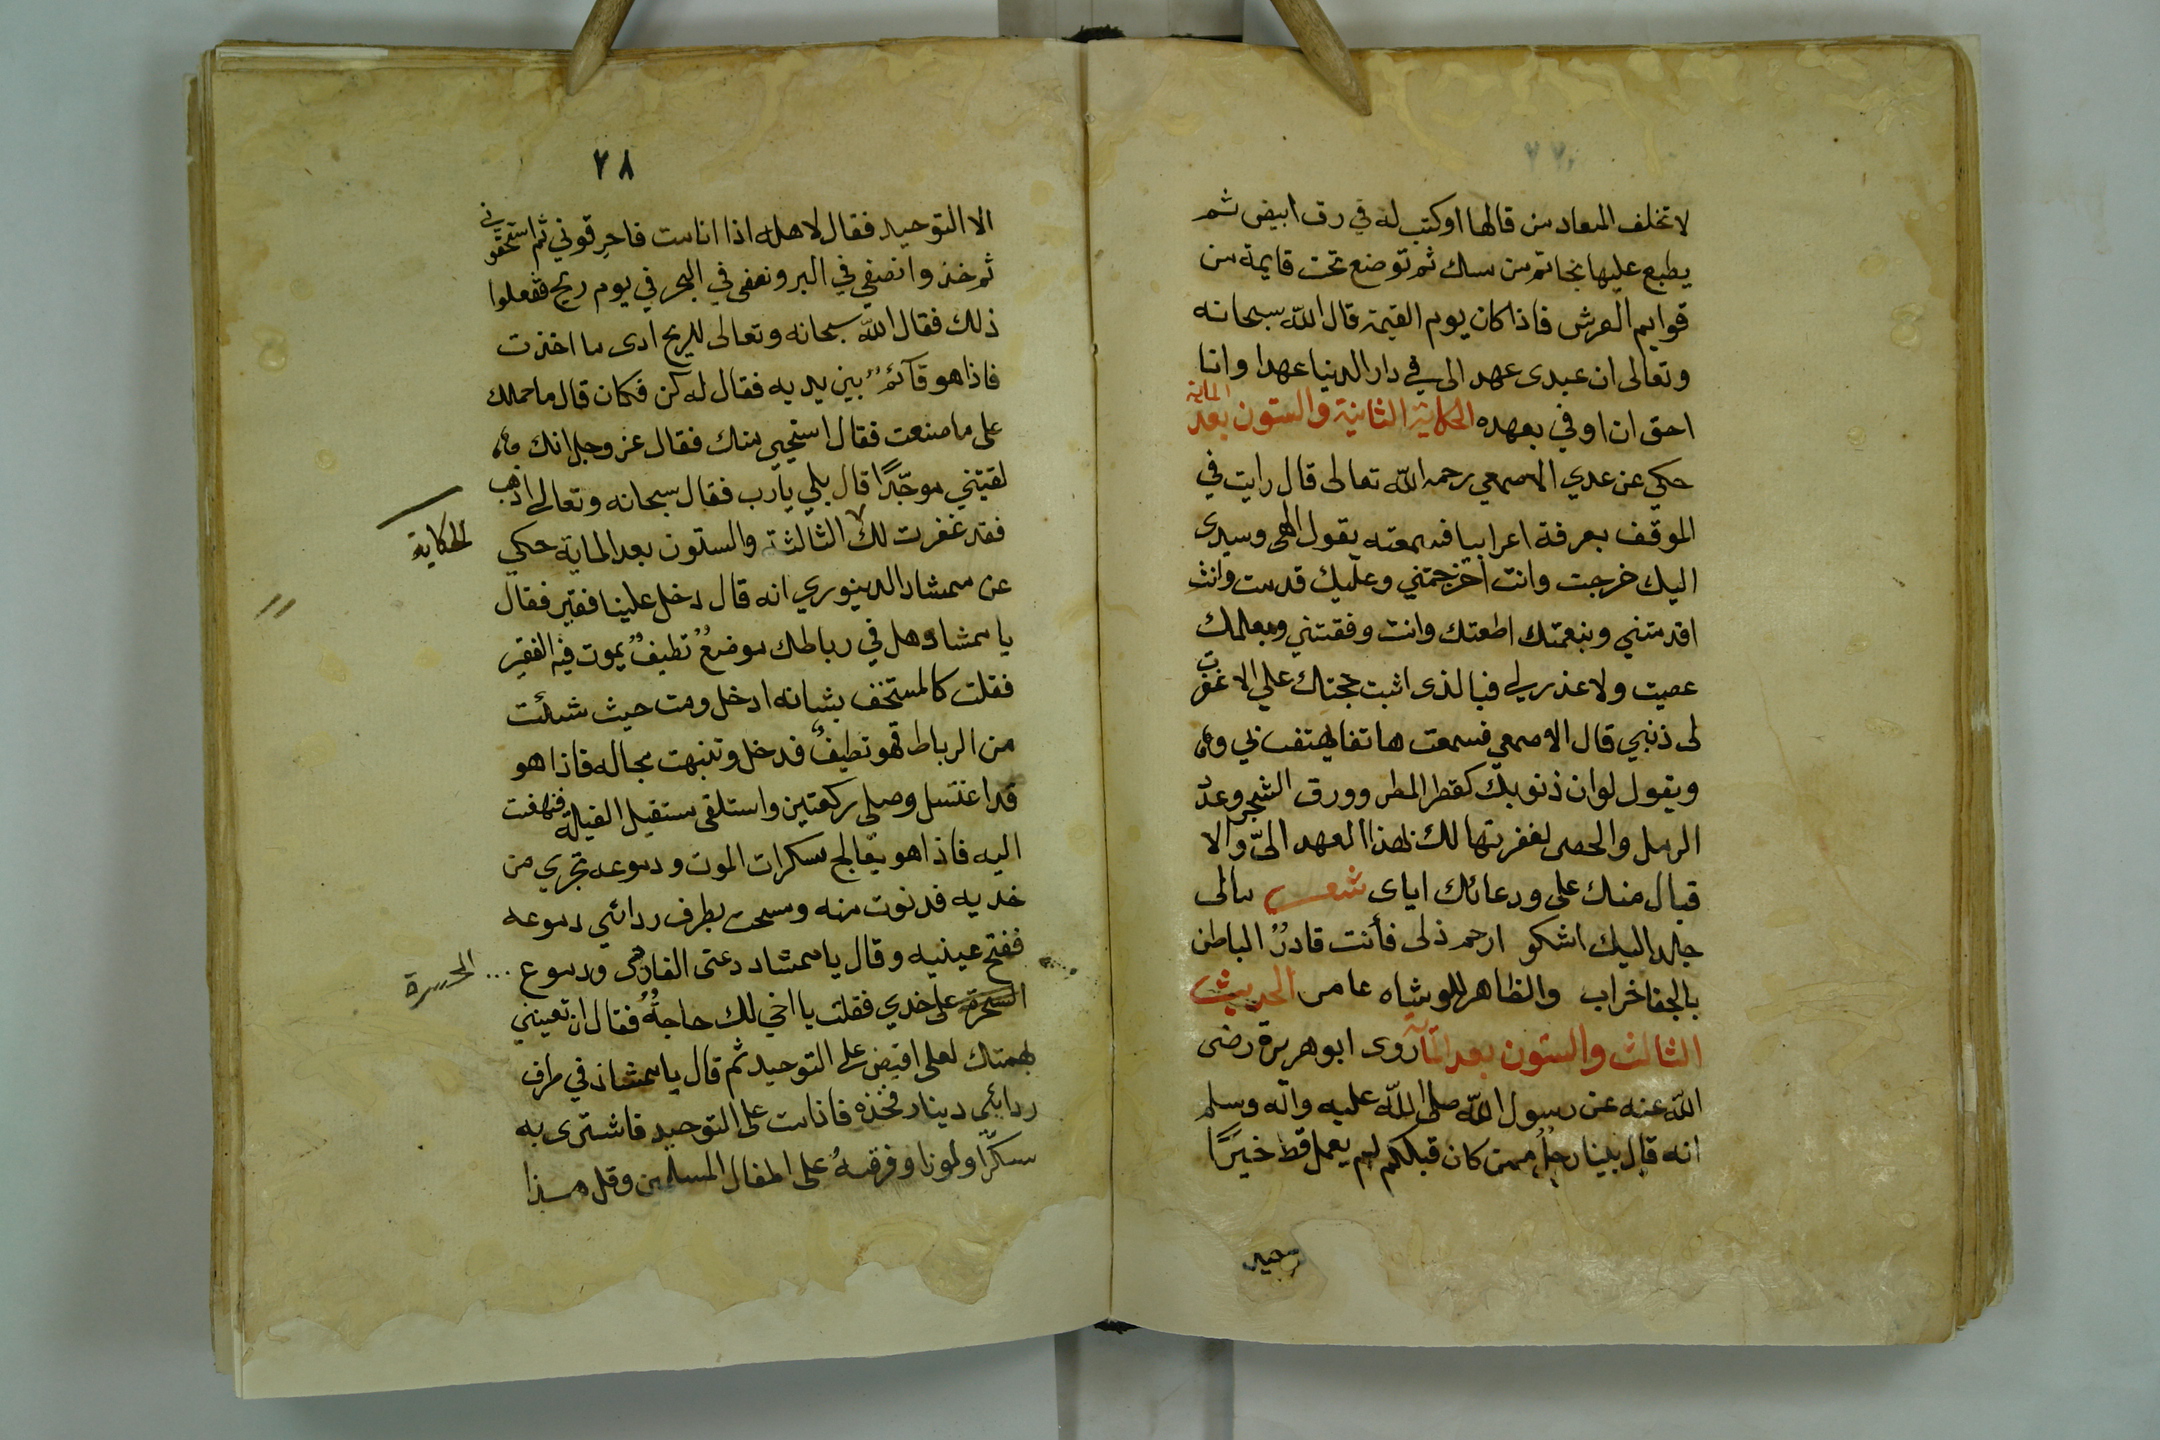 لا تخلف الميعاد من قالها او كتب له في رق ابيض ثم
يطبع عليها بخاتم من مسك ثم توضع تحت قايمة من
قوايم العرش فاذا كان يوم القيمة قال الله سبحانه
وتعالى ان عبدى عهد الى في دار الدنيا عهدا وانا
احق ان اوفي بعهده الحكاية الثانية والستون بعد الماية
حكي عن عدي الاصمعي رحمه الله تعالى قال رايت في
الموقف بعرفة اعرابيا فسمعته يقول الهى وسيدى
اليك خرجت وانت اخرجتني وعليك قدمت وانت
اقدمتني وبنعمتك اطعتك وانت وفقتني وبعلمك
عصيت ولا عذر لي فبالذى اثبت حجتك علي الا غفرت
لى ذنبي قال الاصمعي فسمعت هاتفا يهتف بي
ويقول لو ان ذنوبك كقطر المطر وورق الشجر وعدد
الرمل والحصى لغفرتها لك لهذا العهد الىّ والا
قبال منك على ودعائك اياى شعر مالى
جالد اليك اشكو ارحم ذلى فأنت قادرٌ الباطن
بالجفا خراب والظاهر للوشاه عامر الحديث
الثالث والستون بعد المآية روى ابو هريرة رضى
الله عنه عن رسول الله صلى الله عليه وآله وسلم
انه قال بينا رجلٌ ممن كان قبلكم لم يعمل قط خيرًا
توحيد
٧٨
الا التوحيد فقال لاهله اذا انا مت فاحرقوني ثم اسحقوني
ثم خذوا نصفي في البر ونصفى في البحر في يوم ريح ففعلوا
ذلك فقال الله سبحانه وتعالى للريح ادى ما اخذت
فاذا هو قآئمٌ بين يديه فقال له كن فكان قال ما حملك
على ما صنعت فقال استحيي منك فقال عز وجل انك
لقيتني موحّدًا قال بلي يارب فقال سبحانه وتعالى اذهب
فقد غفرت لك الثالثة والستون بعد الماية حكي
الحكاية
عن ممشاد الدينوري انه قال دخل علينا فقير فقال
يا ممشاد هل في رباطك موضعٌ نظيفٌ يموت فيه الفقير
فقلت كالمستخف بشانه ادخل ومت حيث شئت
من الرباط فهو نظيفٌ فدخل وتنبهت بحاله فاذا هو
قد اغتسل وصلى ركعتين واستلقى مستقبل القبلة فنهضت
اليه فاذا هو يعالج سكرات الموت ودموعه تجري من
خديه فدنوت منه ومسحت بطرف ردائي دموعه
ففتح عينيه وقال يا ممشاد دعنى ودموع
الحسرة
الحسرة على خدي فقلت يا اخي لك حاجةٌ فقال ان تعينني
بهمتك لعلى اقبض على التوحيد ثم قال يا ممشاد في طرف
ردائي دينار فخذه فانا مت على التوحيد فاشترى به
سكرًا ولوزا وفرقهُ على اطفال المسلمين وقل هذا